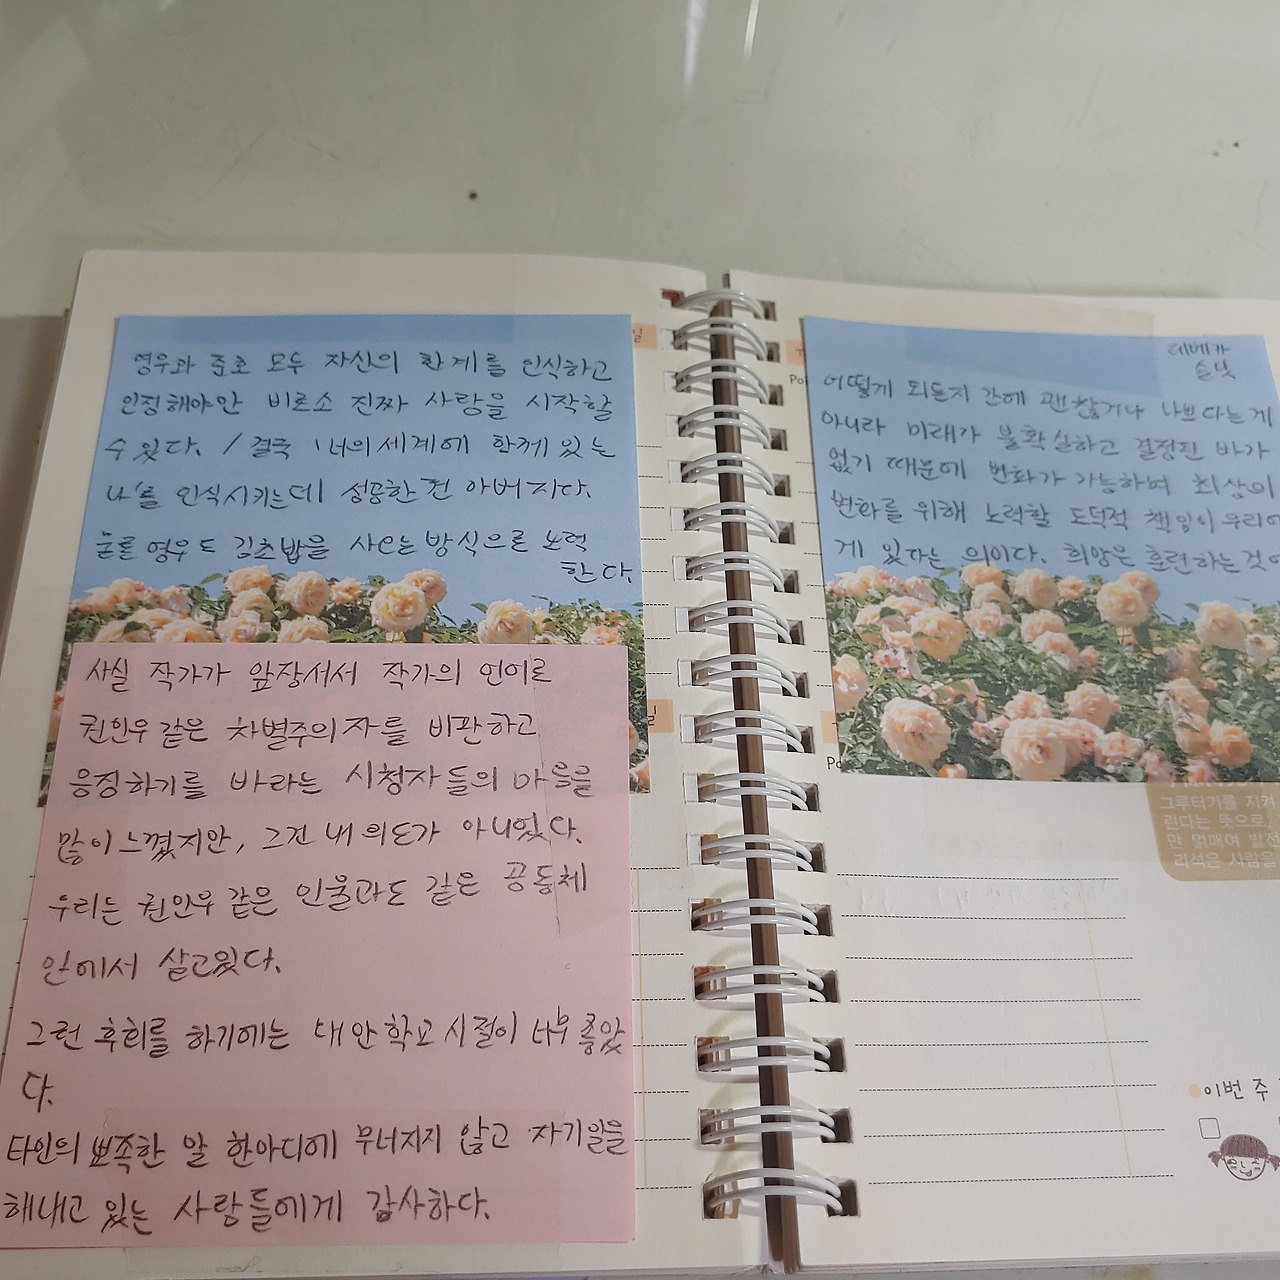 영우와 준호 모두 자신의 한계를 인식하고
인정해야만 비로소 진짜 사랑을 시작할
수 있다. / 결국 '너의 세계에 함께 있는
나'를 인식시키는데 성공한 건 아버지다.
물론 영우도 김초밥을 사는 방식으로 노력
한다.
사실 작가가 앞장서서 작가의 언어로
권민우 같은 차별주의자를 비판하고
응징하기를 바라는 시청자들의 마음을
많이 느꼈지만, 그건 내 의도가 아니었다.
우리는 권민우 같은 인물과도 같은 공동체
안에서 살고있다.
그런 후회를 하기에는 대안학교 시절이 너무 좋았
다.
타인의 뾰족한 말 한마디에 무너지지 않고 자기일을
해내고 있는 사람들에게 감사하다.
일
일
데베가
솔닛
어떻게 되든지 간에 괜찮거나 나쁘다는게
아니라 미래가 불확실하고 결정된 바가
없기 때문에 변화가 가능하며 최상의
변화를 위해 노력할 도덕적 책임이 우리에
게 있다는 의미다. 희망은 훈련하는 것이
그루터기를 지켜
린다는 뜻으로,
만 얽매여 발전
리석은 사람을
이번 주